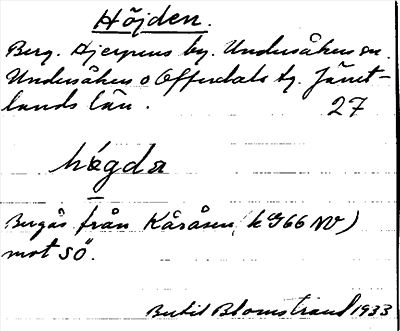 Höjden.
Berg. Hjerpens by. Undersåkers sn.
Undersåkers o Offerdals tg. Jämt-
lands län. 27
högda
Bergås från Kåråsen (k G66 NV)
mot SÖ.
Bertil Blomstrand 1933